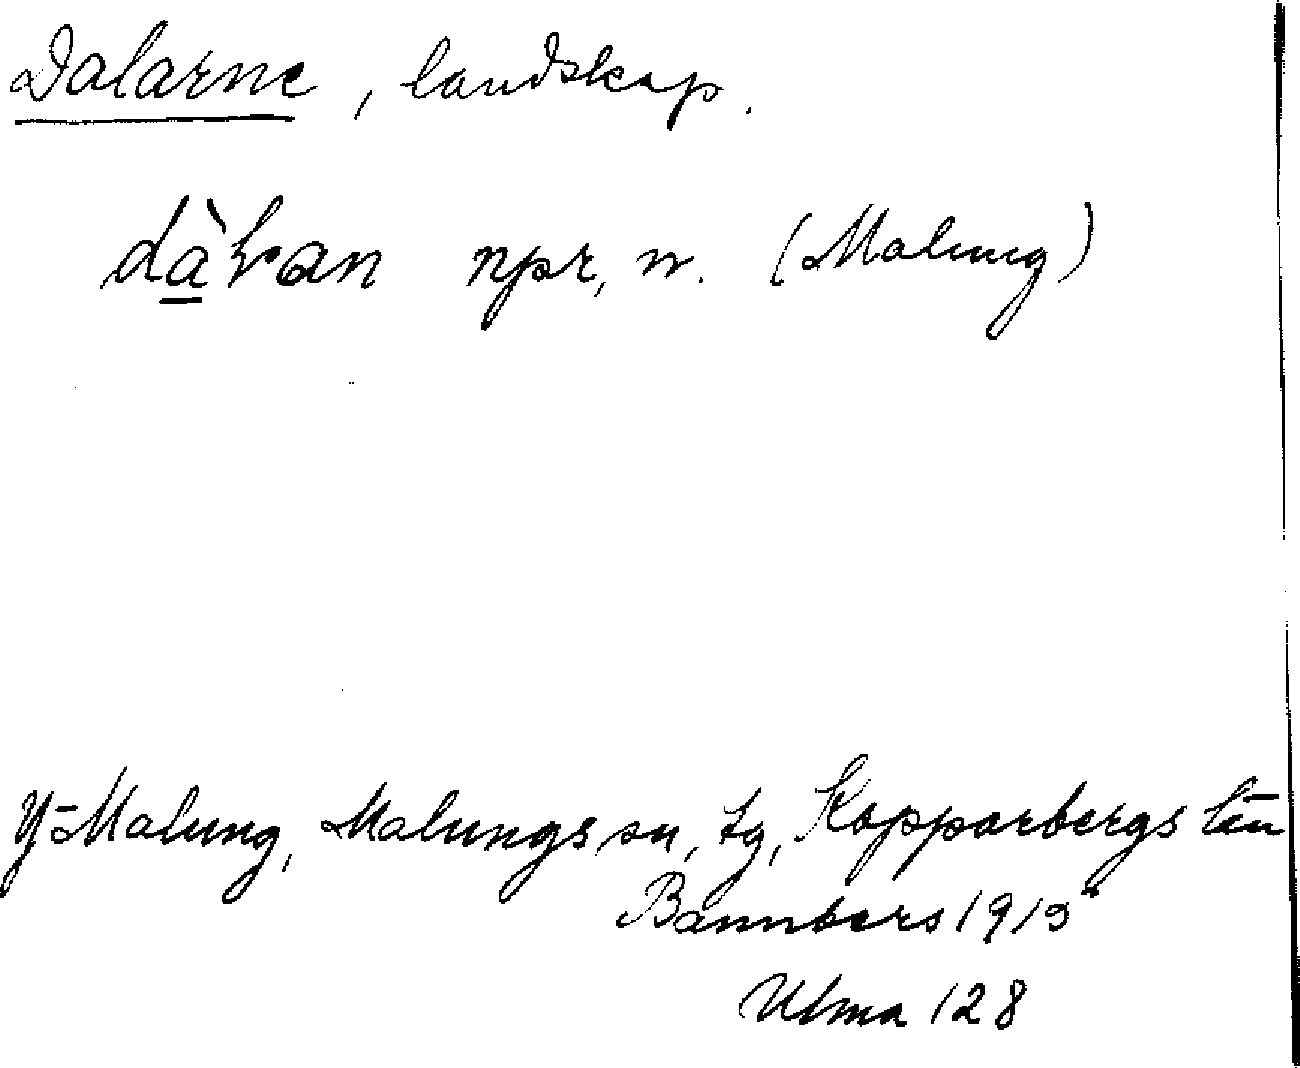 Dalarne, landskap.
npr, n. (Malung)
Y-Malung, Malungs sn, tg, Kopparbergs län
Bannbers 1915
Ulma 128